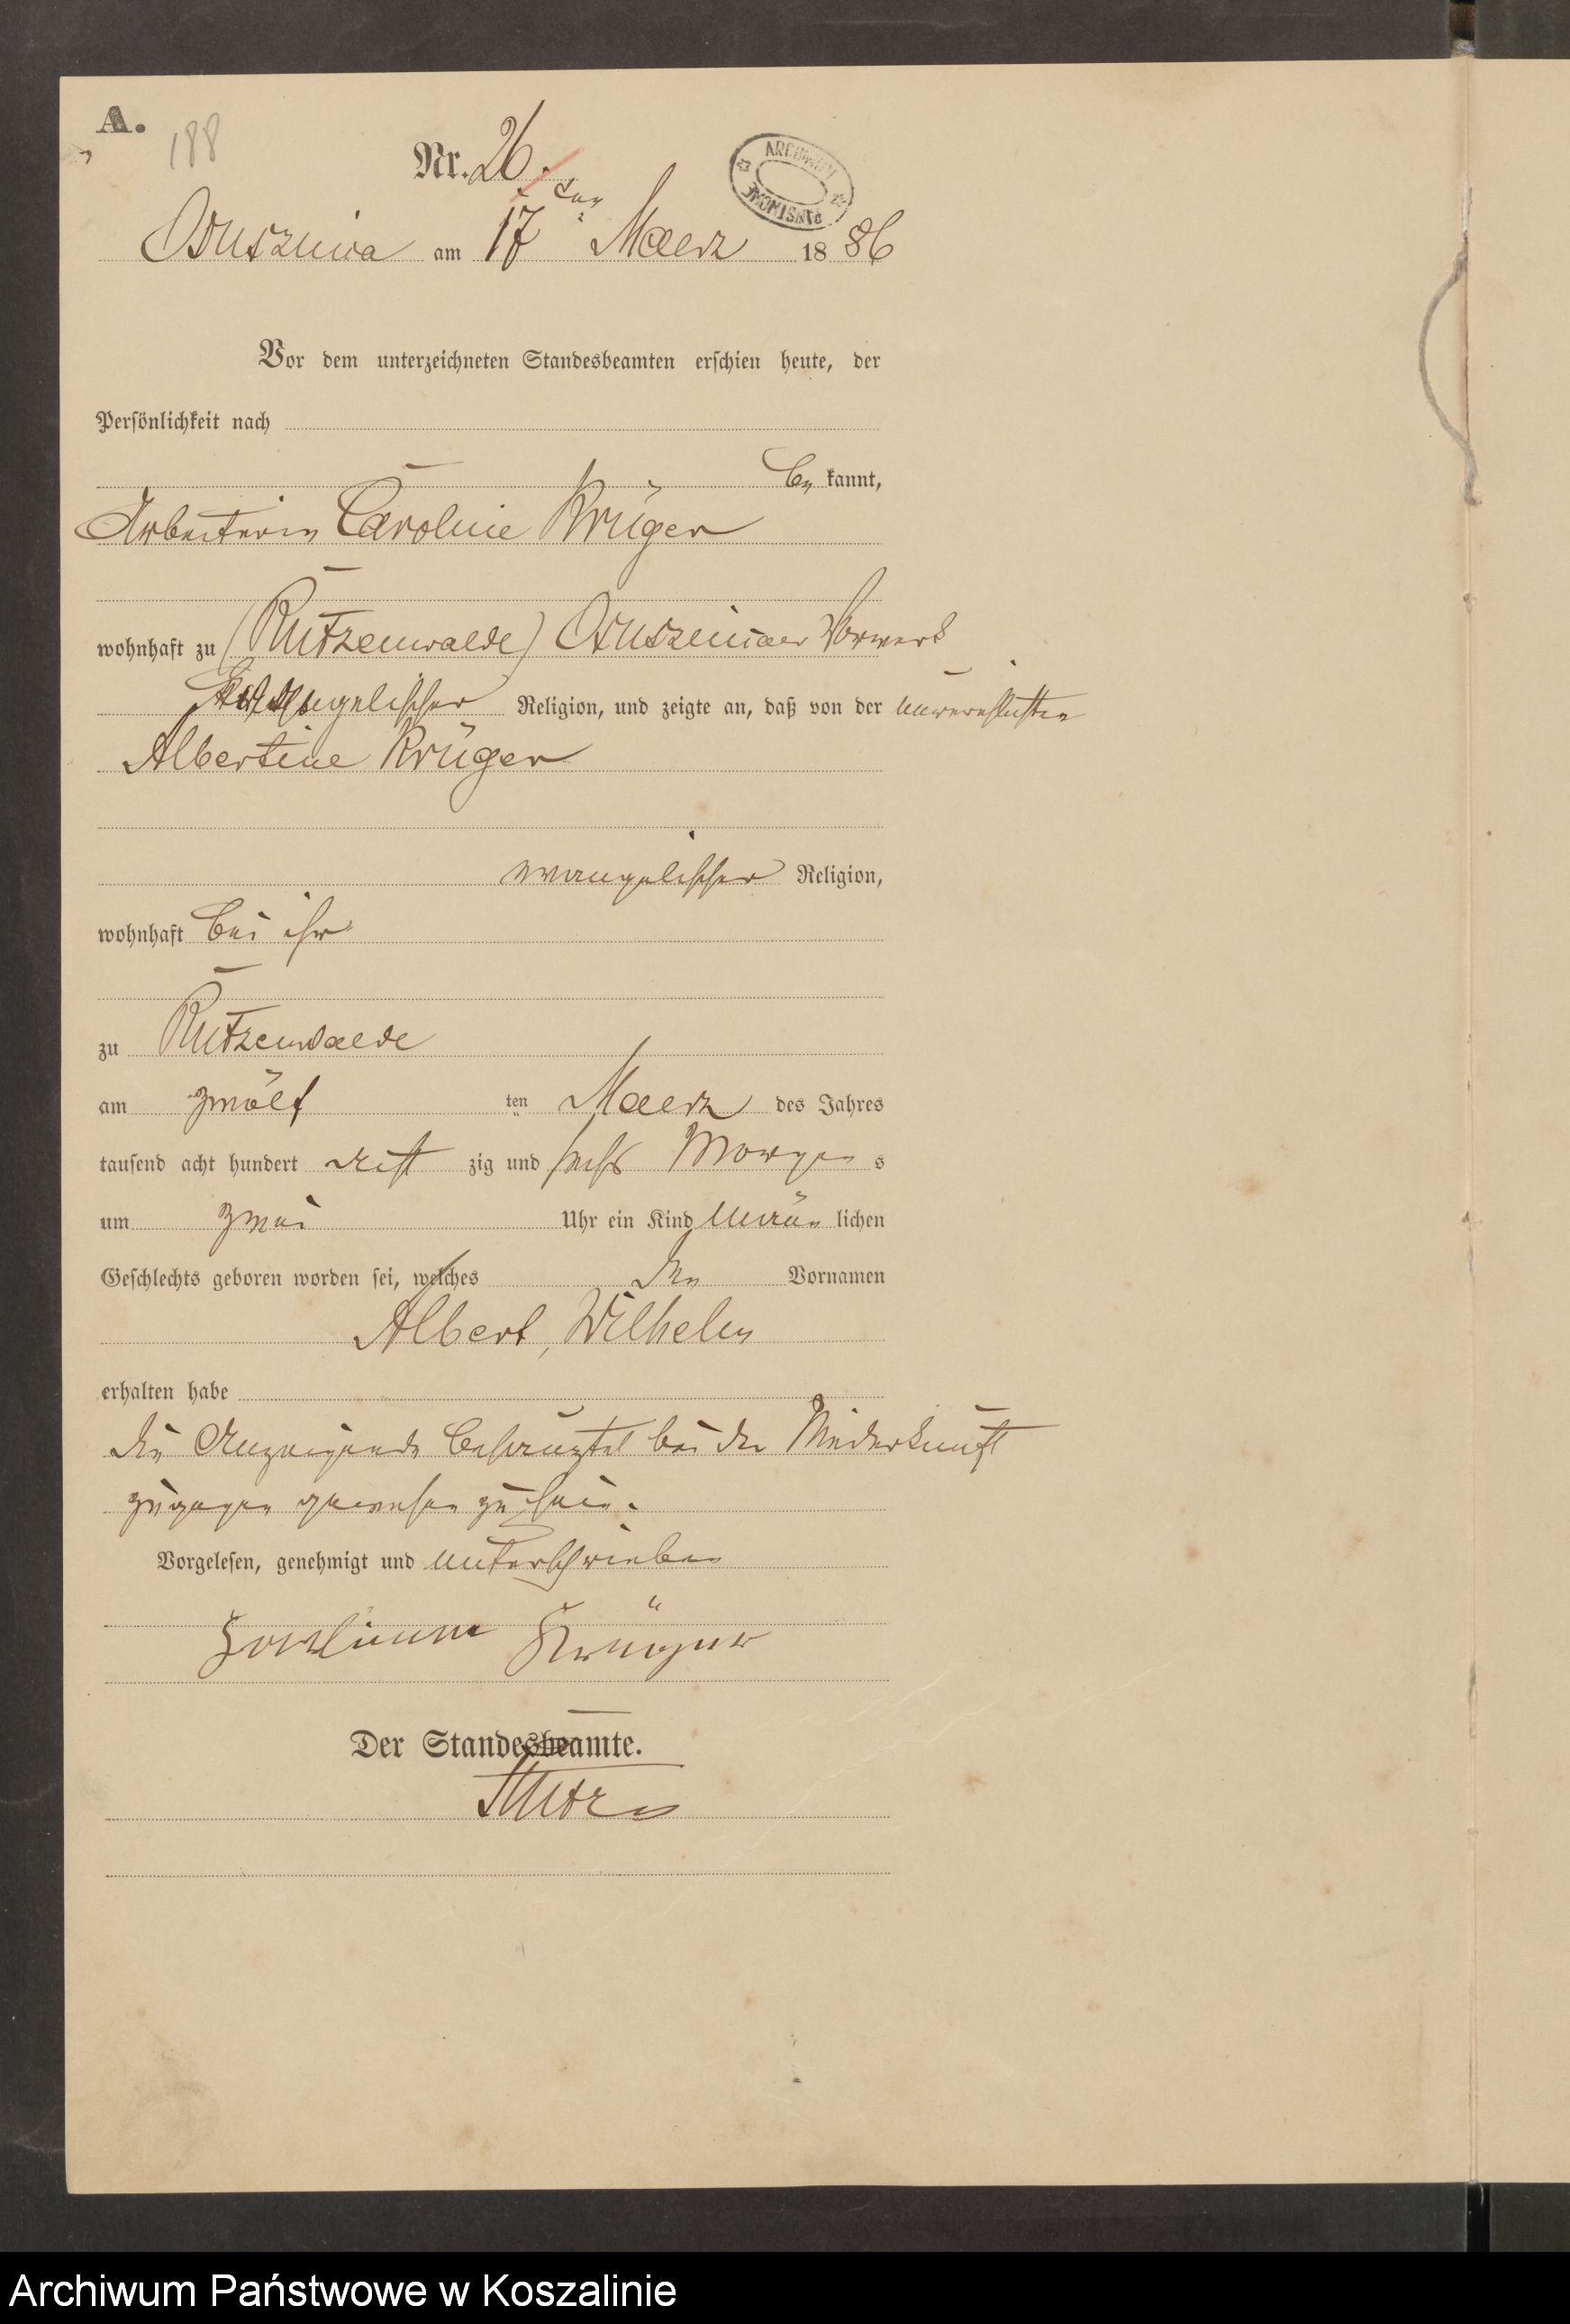 A.
188
Nr. 26.
Osusznica am 17ten Maerz 1886
ARCHIWUM
Vor dem unterzeichneten Standesbeamten erschien heute, der
Persönlichkeit nach
be kannt,
Arbeiterin Caroline Krüger
wohnhaft zu (Rutzenwalde) Osusznicaer Vorwerk
evangelischer Religion, und zeigte an, daß von der unverehlichten
Albertine Krüger
evangelischer Religion,
wohnhaft bei ihr
zu Rutzenwalde
am zwölf ten Maerz des Jahres
tausend acht hundert acht zig und sechs Morgens
um zwei Uhr ein Kind männ lichen
Geschlechts geboren worden sei, welches die Vornamen
Albert, Wilhelm
erhalten habe
die Anzeigende behauptet bei der Niederkunft
zugegen gewesen zu sein.
Vorgelesen, genehmigt und unterschrieben
Karline Krüger
Der Standesbeamte.
Archiwum Państwowe w Koszalinie